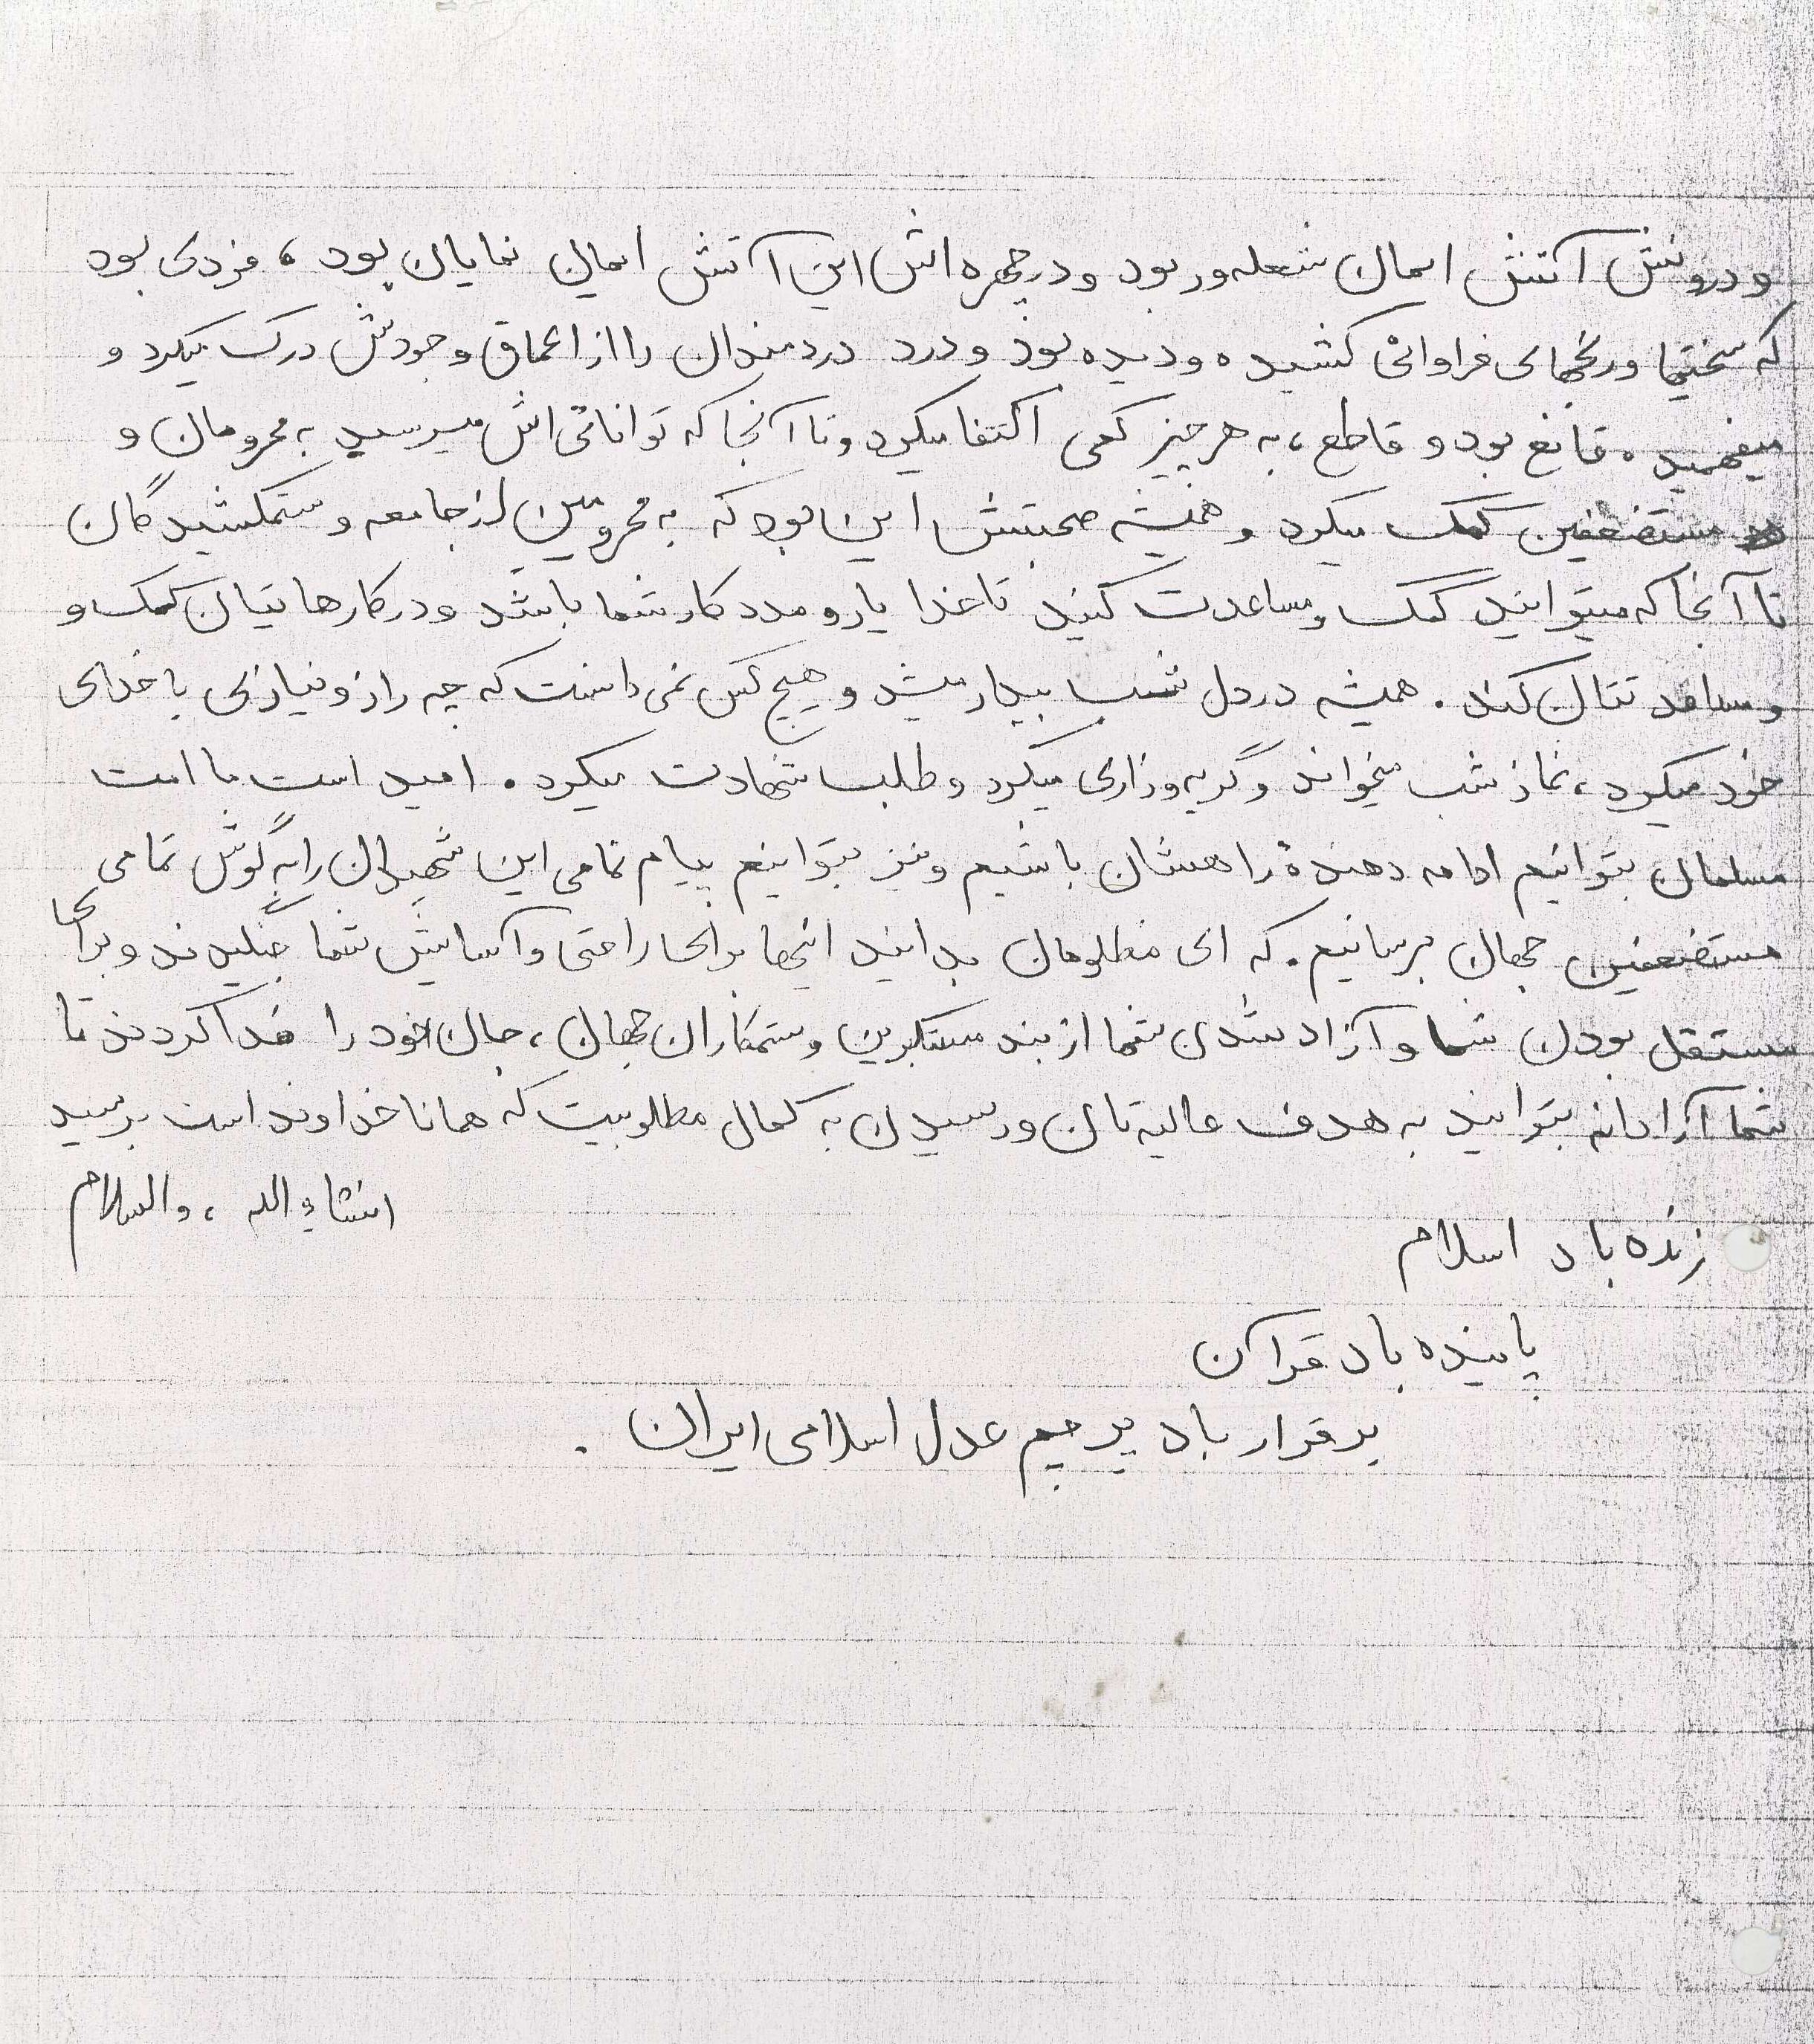 و درونش آتش ایمان شعله‌ور بود و در چهره‌اش این آتش ایمان نمایان بود ، فردی بود
که سختیها و رنجهای فراوانی کشیده و دیده بود و درد دردمندان را از اعماق وجودش درک میکرد و
میفهمید ، قانع بود و قاطع ، به هر چیز کمی اکتفا میکرد و تا آنجا که توانائی‌اش میرسید به محرومان و
مستضعفین کمک میکرد و همیشه صحبتش این بود که به محرومین از جامعه و ستمکشیدگان
تا آنجا که میتوانید کمک و مساعدت کنید تا خدا یار و مددکار شما باشد و در کارهایتان کمک و
و مساعدتتان کند . همیشه در دل شب بیدار میشد و هیچ کس نمی‌دانست که چه راز و نیازی با خدای
خود میکرد ، نماز شب میخواند و گریه و زاری میکرد و طلب شهادت میکرد . امید است ما امت
مسلمان بتوانیم ادامه دهندهٔ راهشان باشیم و نیز بتوانیم پیام تمامی این شهیدان را به گوش تمامی
مستضعفین جهان برسانیم . که ای مظلومان بدانید اینها برای راحتی و آسایش شما جنگیدند و برای
مستقل بودن شما و آزاد شدن شما از بند مستکبرین و ستمکاران جهان ، جان خود را فدا کردند تا
شما آزادانه بتوانید به هدف عالیه‌تان و رسیدن به کمال مطلوبیت که همانا خداوند است برسید
انشاءالله ، والسلام
زنده باد اسلام
پاینده باد قرآن
برقرار باد پرچم عدل اسلامی ایران .